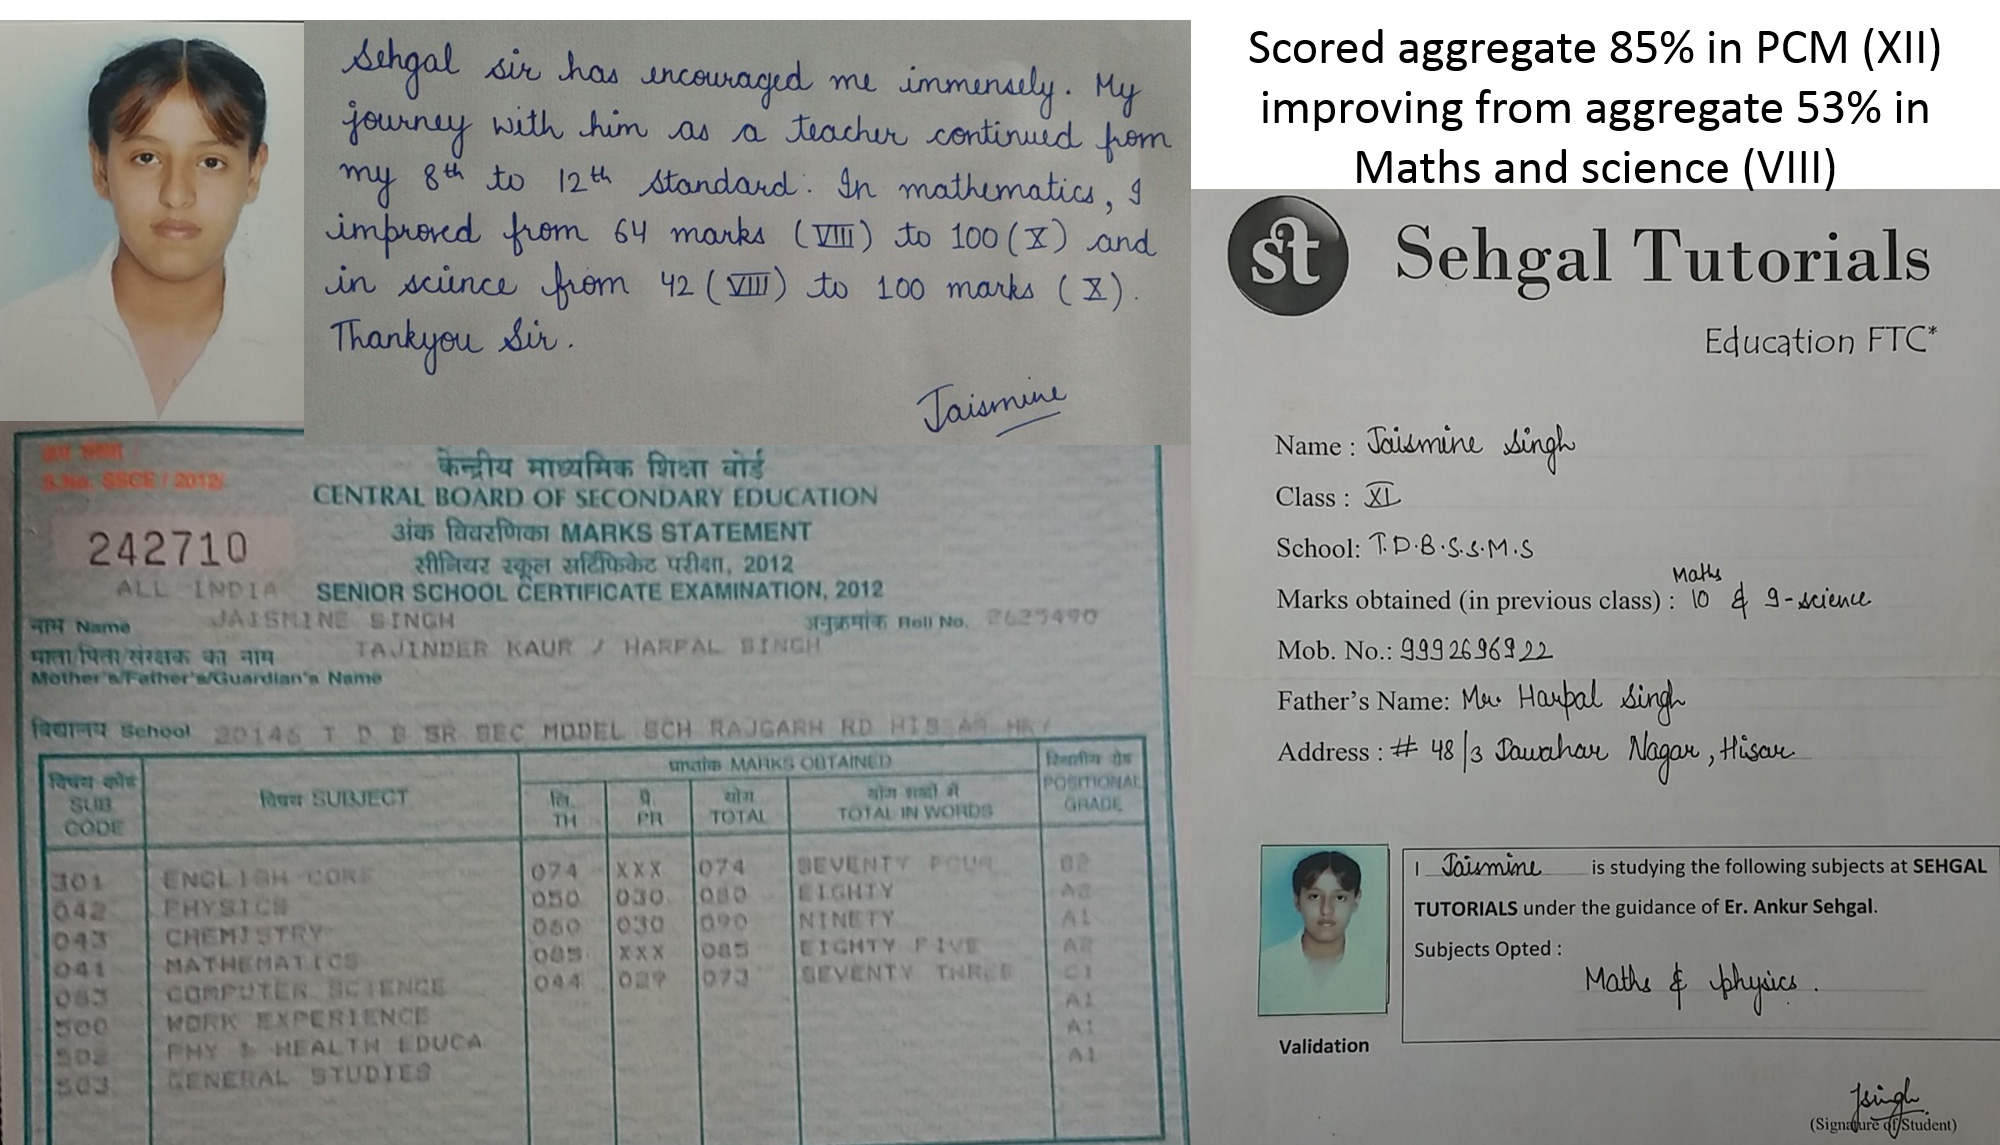 Sehgal sir has encouraged me immensely. My
journey with him as a teacher continued from
my 8th to 12th standard. In mathematics, I
improved from 64 marks (VIII) to 100 (X) and
in science from 42 (VIII) to 100 marks (X).
Thankyou Sir.
Jaismine
Scored aggregate 85% in PCM (XII)
improving from aggregate 53% in
Maths and science (VIII)
S.No. SSCE / 2012/
242710
ALL INDIA
केन्द्रीय माध्यमिक शिक्षा बोर्ड
CENTRAL BOARD OF SECONDARY EDUCATION
अंक विवरणिका MARKS STATEMENT
सीनियर स्कूल सर्टिफिकेट परीक्षा, 2012
SENIOR SCHOOL CERTIFICATE EXAMINATION, 2012
नाम Name JAISMINE SINGH अनुक्रमांक Roll No. 2625490
माता/पिता/संरक्षक का नाम TAJINDER KAUR / HARPAL SINGH
Mother's/Father's/Guardian's Name
विद्यालय School 20146 T D B SR SEC MODEL SCH RAJGARH RD HISSAR HRY
विषय कोड SUB CODE विषय SUBJECT प्राप्तांक MARKS OBTAINED POSITIONAL GRADE
लि. TH प्रै. PR योग TOTAL योग शब्दों में TOTAL IN WORDS
301 ENGLISH CORE 074 XXX 074 SEVENTY FOUR B2
042 PHYSICS 050 030 080 EIGHTY A2
043 CHEMISTRY 060 030 090 NINETY A1
041 MATHEMATICS 085 XXX 085 EIGHTY FIVE A2
083 COMPUTER SCIENCE 044 029 073 SEVENTY THREE C1
500 WORK EXPERIENCE A1
502 PHY & HEALTH EDUCA A1
503 GENERAL STUDIES A1
st Sehgal Tutorials
Education FTC*
Name : Jaismine Singh
Class : XI
School: T.D.B.S.S.M.S
Marks obtained (in previous class) : 10 Maths & 9-science
Mob. No.: 9992696922
Father's Name: Mr Harpal Singh
Address : # 48/3 Jawahar Nagar, Hisar
I Jaismine is studying the following subjects at SEHGAL
TUTORIALS under the guidance of Er. Ankur Sehgal.
Subjects Opted :
Maths & physics.
Validation
Jsingh
(Signature of Student)